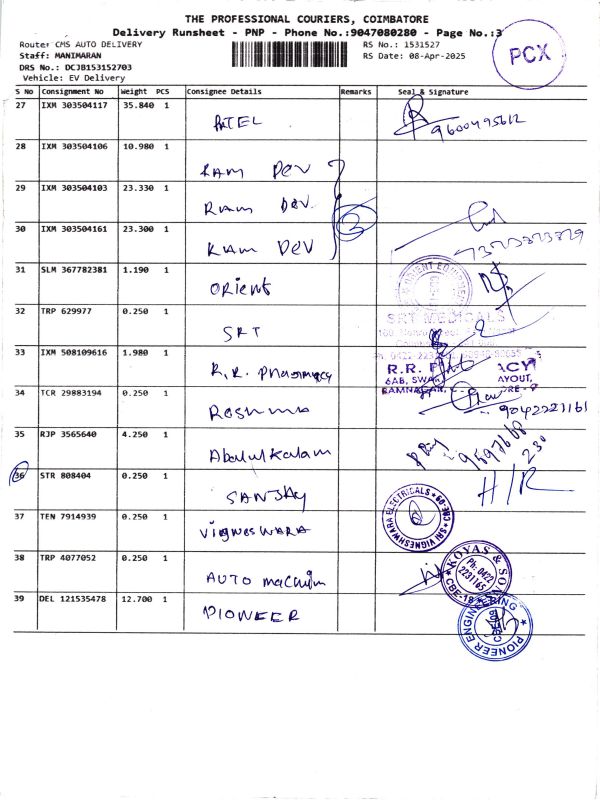 THE PROFESSIONAL COURIERS, COIMBATORE
Delivery Runsheet - PNP - Phone No.:9047080280 - Page No.:3
Route: CMS AUTO DELIVERY
RS No.: 1531527
Staff: MANIMARAN
RS Date: 08-Apr-2025
DRS No.: DCJB153152703
Vehicle: EV Delivery
PCX
S No Consignment No Weight PCS Consignee Details Remarks Seal & Signature
27 IXM 303504117 35.840 1 PATEL 9600495612
28 IXM 303504106 10.980 1 RAM DEV
29 IXM 303504103 23.330 1 RAM DEV
3
30 IXM 303504161 23.300 1 RAM DEV
31 SLM 367782381 1.190 1 ORient
32 TRP 629977 0.250 1 SRT
SRT MEDICALS
33 IXM 508109616 1.980 1 R.R. Pharmacy
R.R. P ACY
6AB, SWA AYOUT,
RAMNAGAR,
34 TCR 29883194 0.250 1
9042221161
35 RJP 3565640 4.250 1 Abdulkalam
36 STR 808404 0.250 1 SANJAY H/R
37 TEN 7914939 0.250 1 VIGNESWARA
SRI VIGNESHWARA ELECTRICALS CBE-09
38 TRP 4077052 0.250 1 AUTO
KOYAS & SO
Ph: 0422
2231165
CBE-18
39 DEL 121535478 12.700 1 PIONEER
PIONEER ENGINEERING